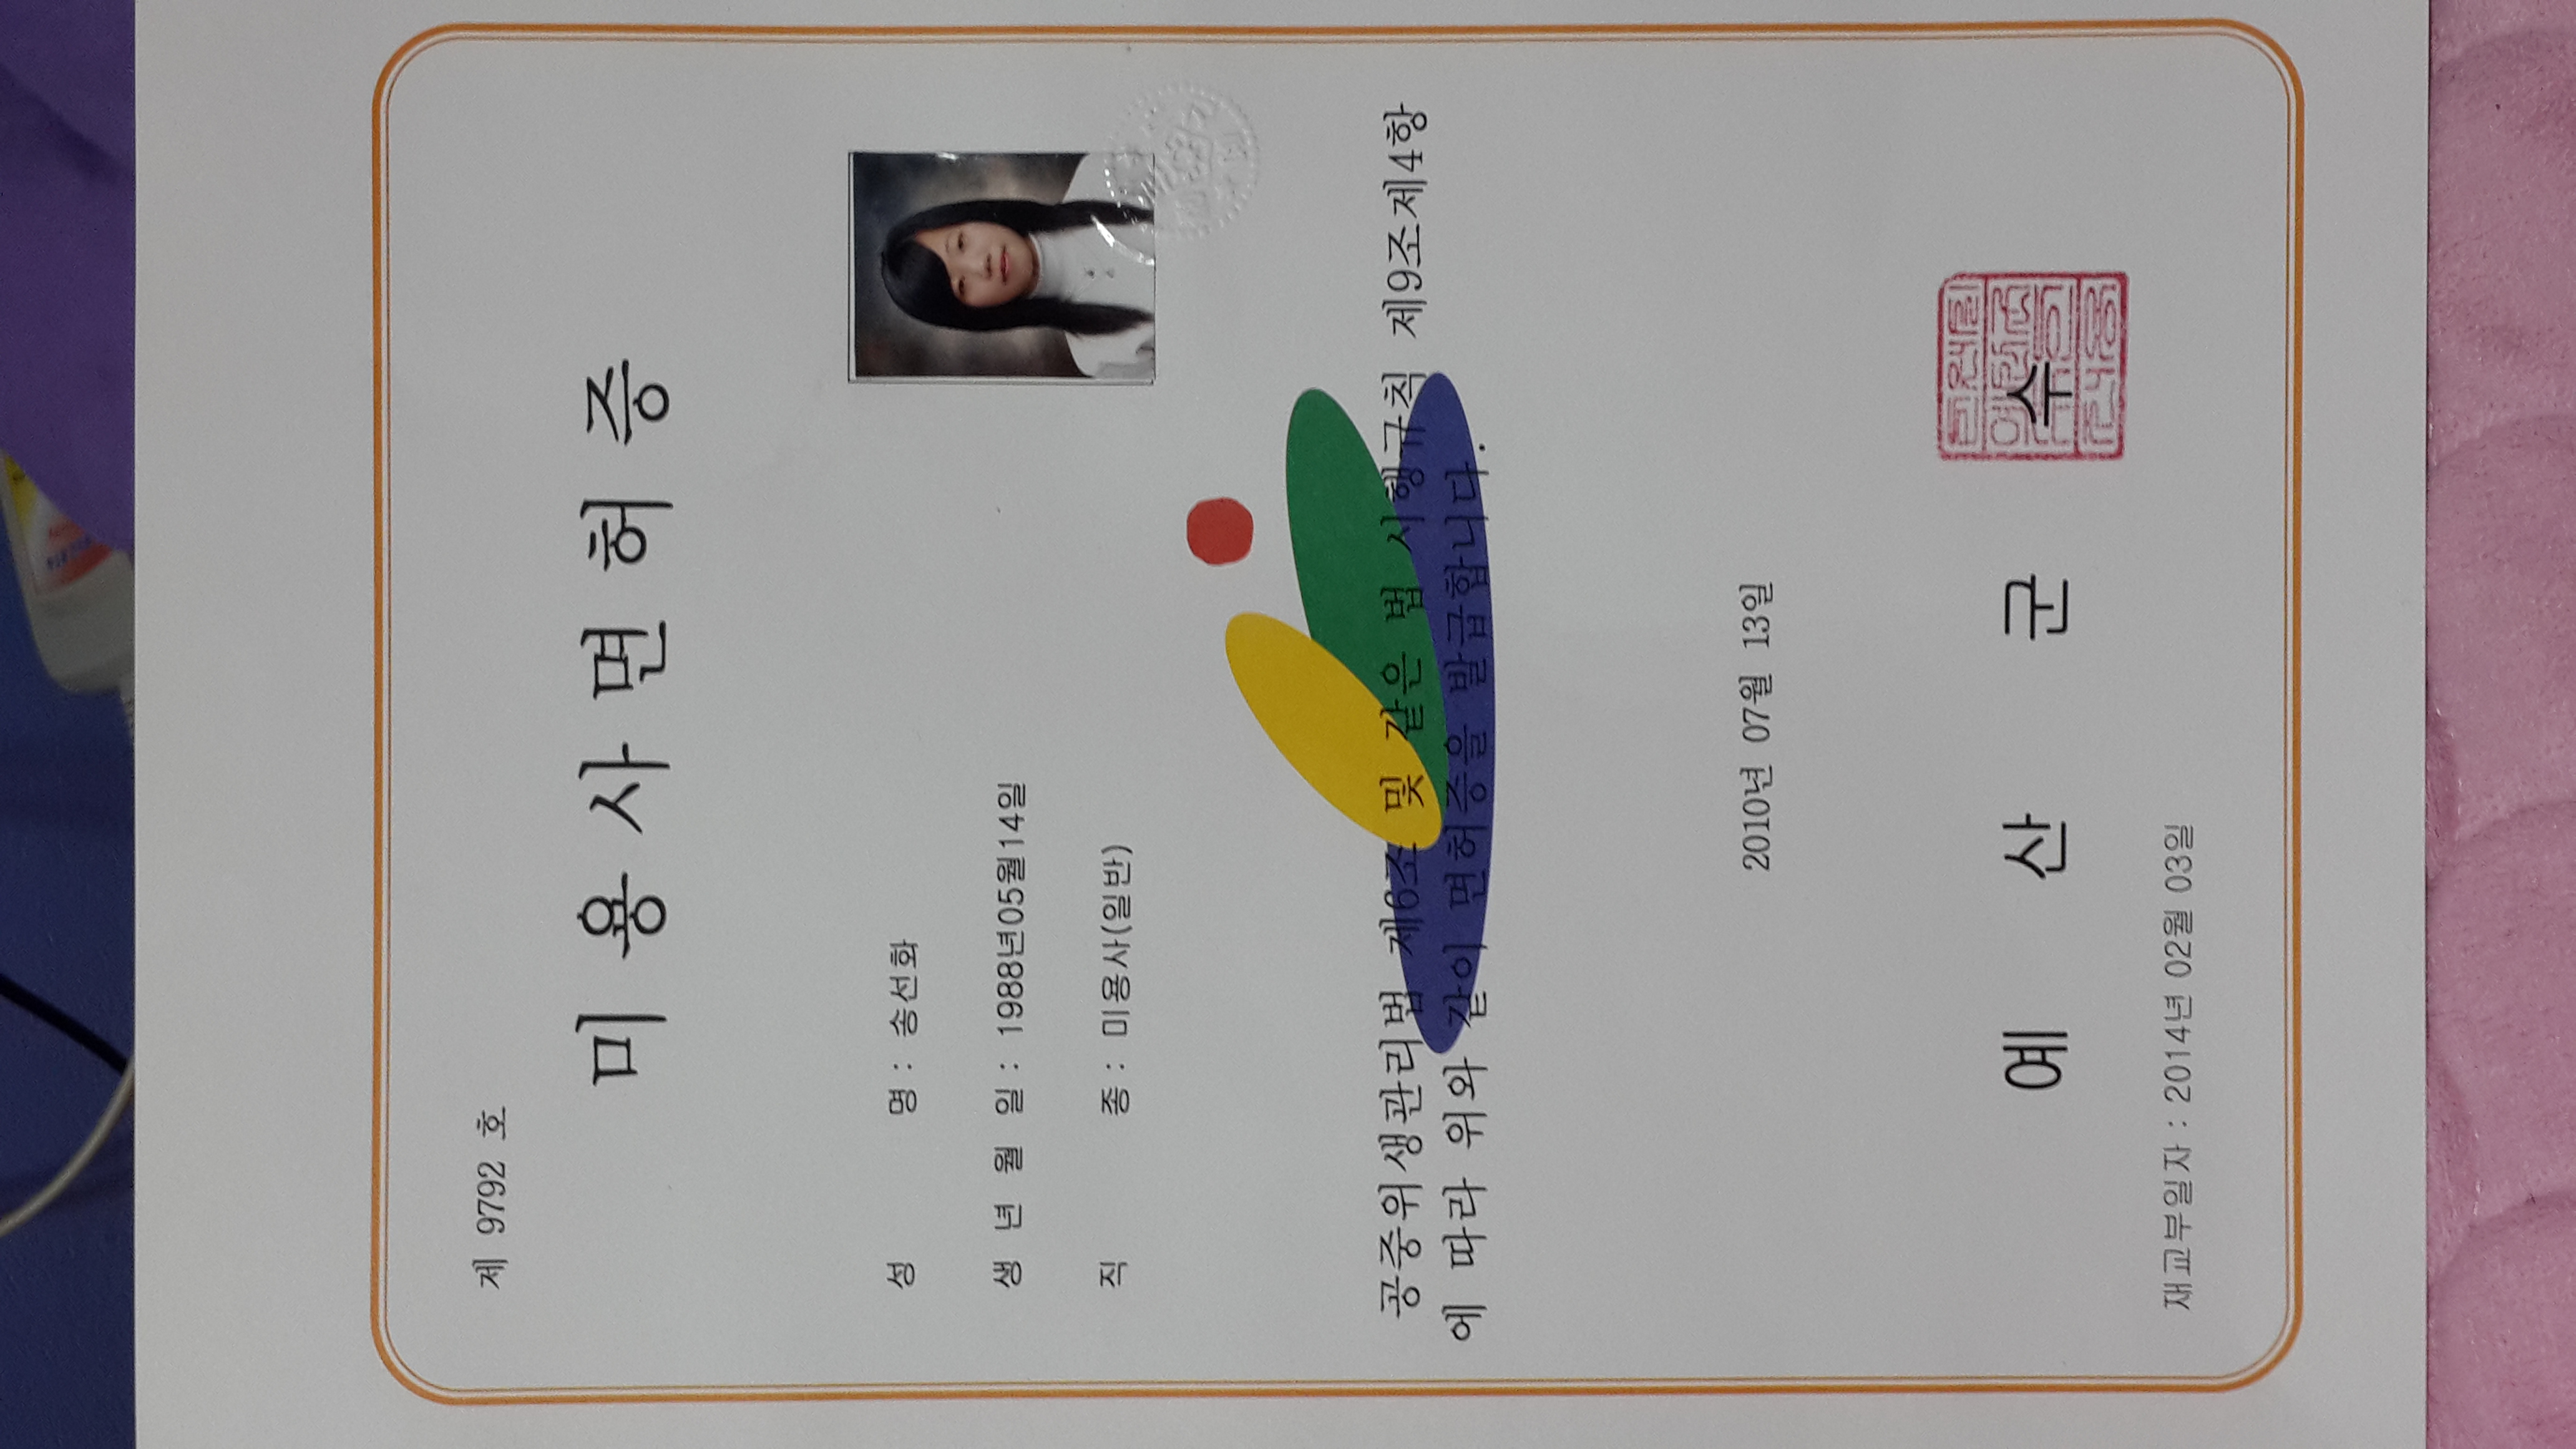 제 9792 호
미용사면허증
성 명 : 송선화
생 년 월 일 : 1988년05월14일
직 종 : 미용사(일반)
공중위생관리법 제6조 및 같은 법 시행규칙 제9조제4항
에 따라 위와 같이 면허증을 발급합니다.
2010년 07월 13일
예 산 군 수
재교부일자 : 2014년 02월 03일